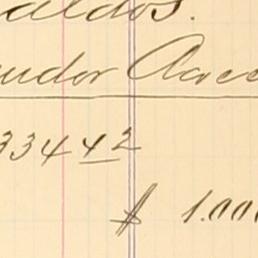 aldos.
udor Acree
334 42
$ 1.000